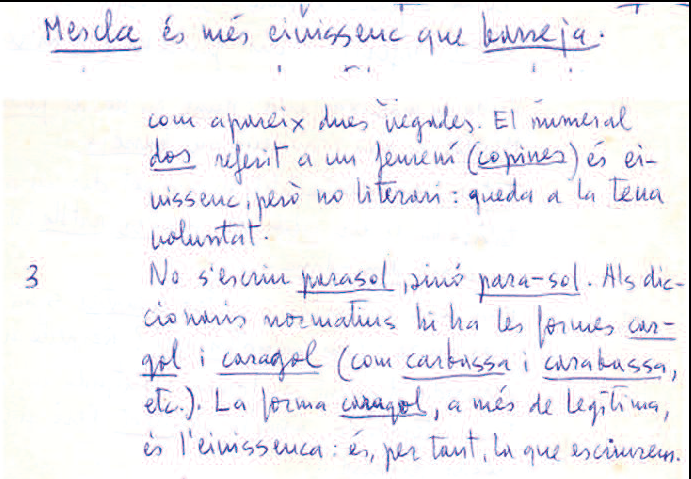 Mescla és més eivissenc que barreja.
com apareix dues vegades. El numeral
dos referit a un femení (copines) és ei-
vissenc, però no literari: queda a la teua
voluntat.
3 No s'escriu parasol, sinó para-sol. Als dic-
cionaris normatius hi ha les formes car-
gol i caragol (com carbassa i carabassa,
etc.). La forma caragol, a més de legítima,
és l'eivissenca: és, per tant, la que escriurem.